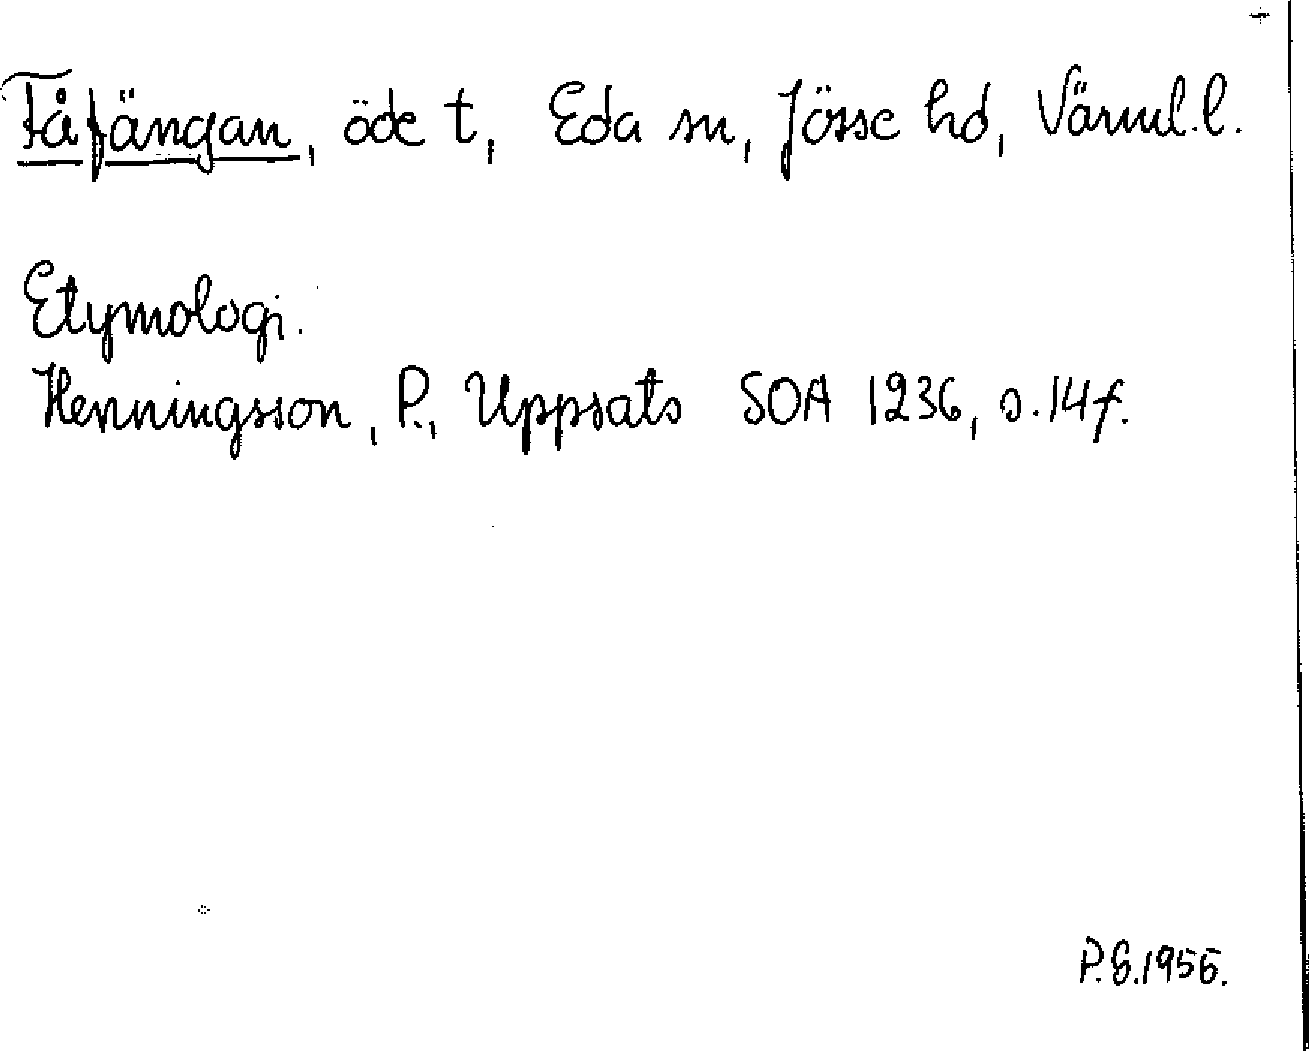 Fåfängan, öde t, Eda sn, Jösse hd, Värml.l.
Etymologi.
Henningsson, P., Uppsats SOA 1236, s.14f.
P.G.1956.